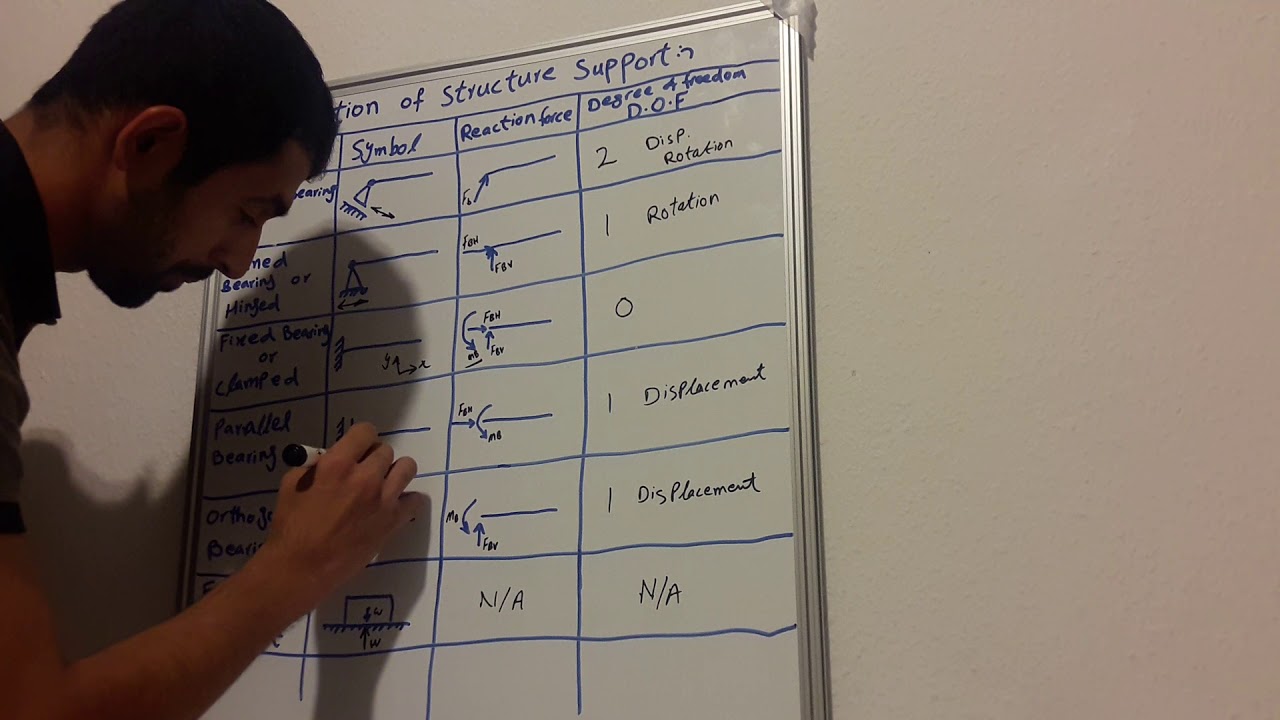 tion of Structure Support:
Symbol
Reaction force
Degree of freedom
D.O.F
earing
FB
2 Disp.
Rotation
ned
Bearing or
Hinged
FBH
FBV
1 Rotation
Fixed Bearing
or
Clamped
y
x
FBH
mB
FBV
0
Parallel
Bearing
FBH
mB
1 Displacement
Orthog
Beari
MB
FBV
1 Displacement
W
N/A
N/A